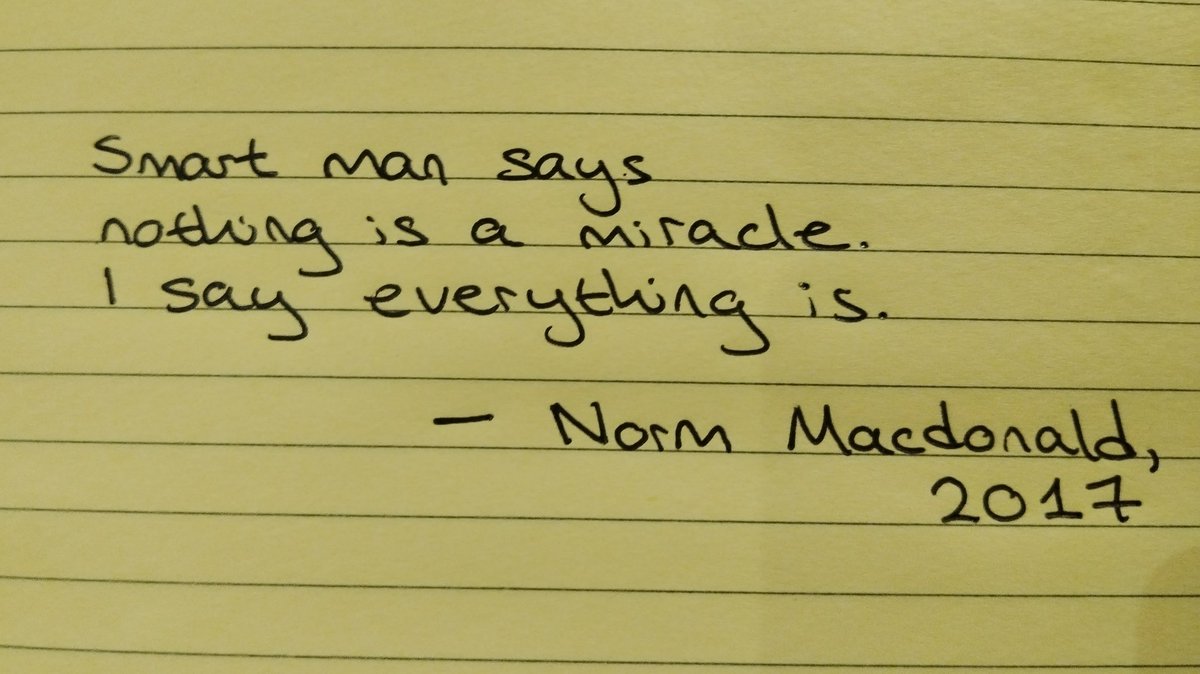 Smart man says
nothing is a miracle.
I say everything is.
— Norm Macdonald,
2017